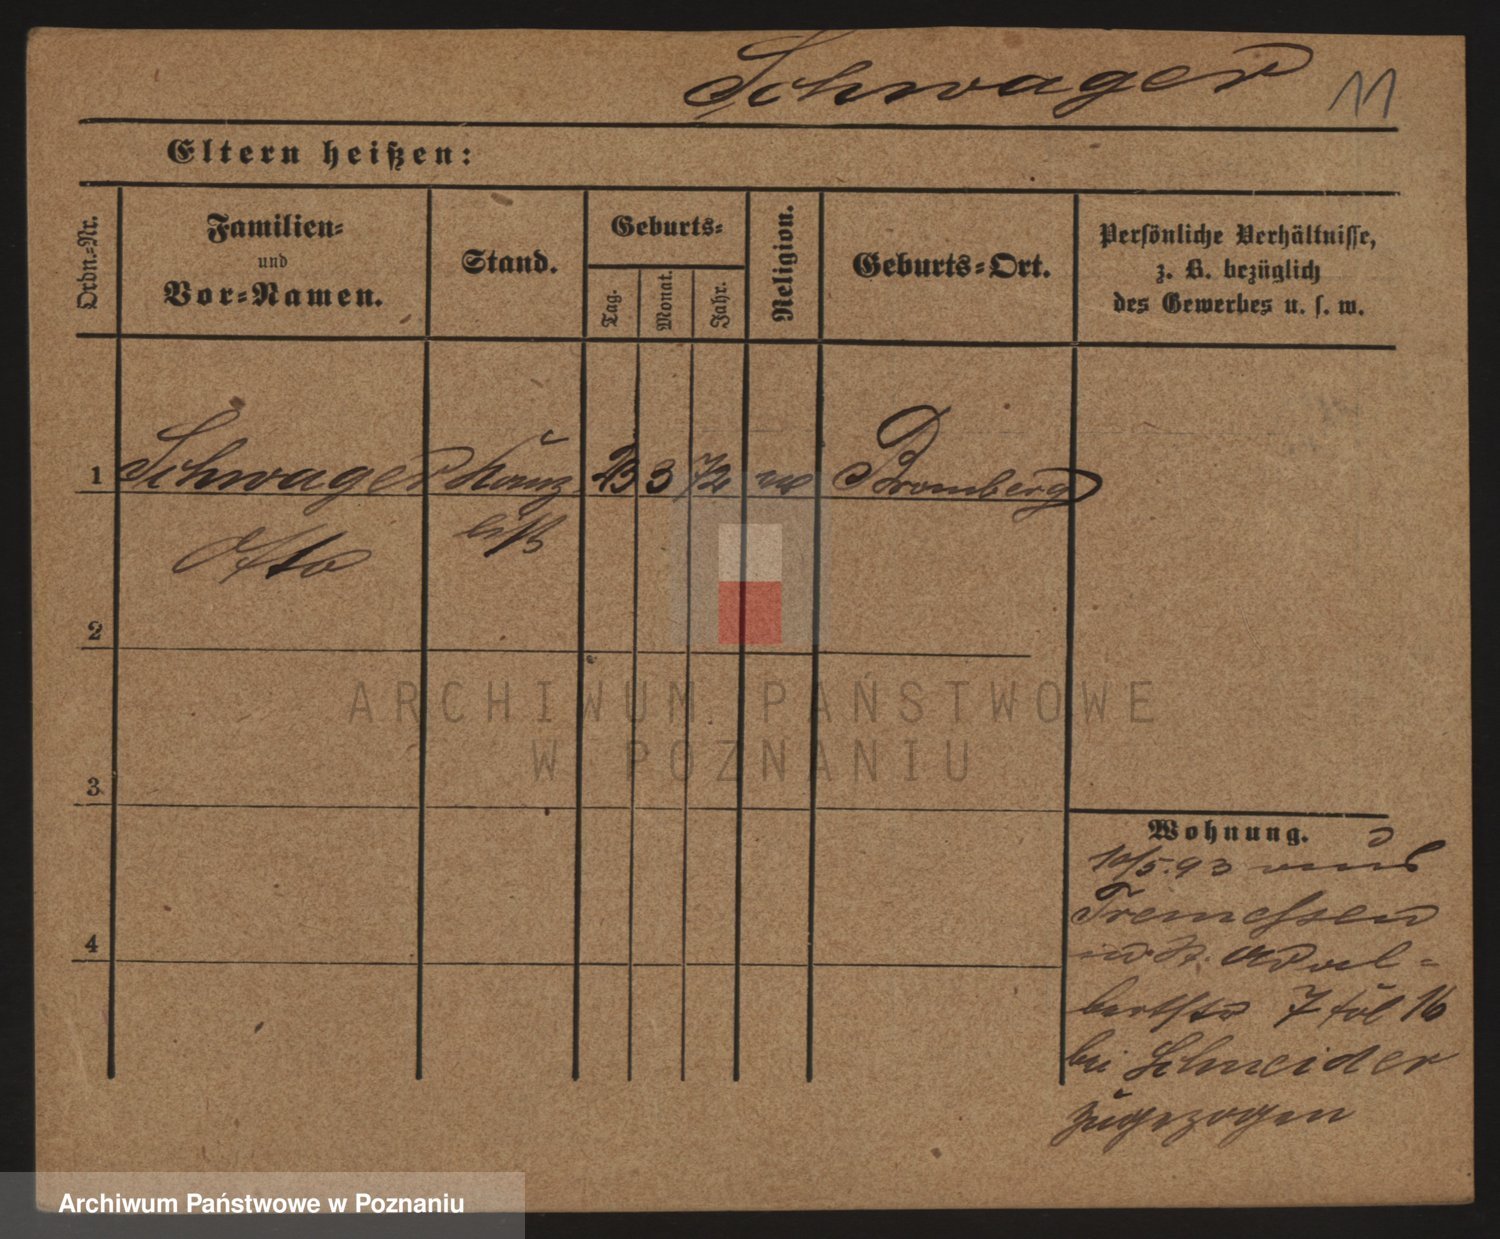 Schwager 11
Eltern heißen:
Ordn.-Nr.
Familien-
und
Vor-Namen.
Stand.
Geburts-
Tag.
Monat.
Jahr.
Religion.
Geburts-Ort.
Persönliche Verhältnisse,
z. B. bezüglich
des Gewerbes u. s. w.
1 Schwager Kanz 23 3 72 Bromberg
Otto list
2
3
4
ARCHIWUM PAŃSTWOWE
W POZNANIU
Wohnung.
10/5.93 aus
Tremessen
n. St. Adal-
bertstr 7 fol 16
bei Schneider
zugezogen
Archiwum Państwowe w Poznaniu